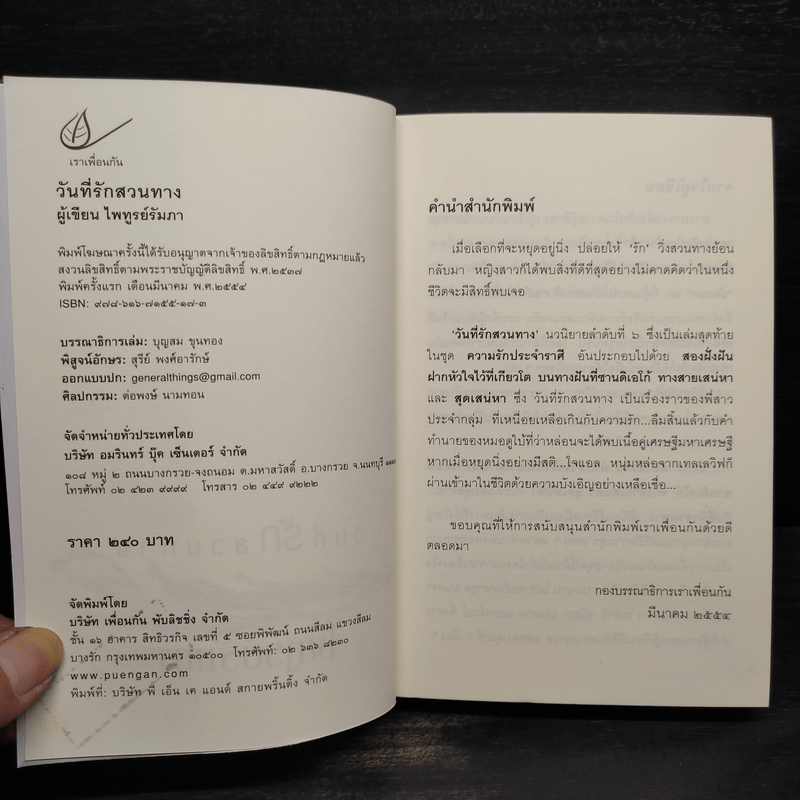 เราเพื่อนกัน
วันที่รักสวนทาง
ผู้เขียน ไพฑูรย์รัมภา
พิมพ์โฆษณาครั้งนี้ได้รับอนุญาตจากเจ้าของลิขสิทธิ์ตามกฎหมายแล้ว
สงวนลิขสิทธิ์ตามพระราชบัญญัติลิขสิทธิ์ พ.ศ.๒๕๓๗
พิมพ์ครั้งแรก เดือนมีนาคม พ.ศ.๒๕๕๔
ISBN: ๙๗๘-๖๑๖-๗๑๕๕-๑๗-๓
บรรณาธิการเล่ม: บุญสม ขุนทอง
พิสูจน์อักษร: สุรีย์ พงศ์อารักษ์
ออกแบบปก: generalthings@gmail.com
ศิลปกรรม: ต่อพงษ์ นามทอน
จัดจำหน่ายทั่วประเทศโดย
บริษัท อมรินทร์ บุ๊ค เซ็นเตอร์ จำกัด
๑๐๘ หมู่ ๒ ถนนบางกรวย-จงถนอม ต.มหาสวัสดิ์ อ.บางกรวย จ.นนทบุรี
โทรศัพท์ ๐๒ ๔๒๓ ๙๙๙๙ โทรสาร ๐๒ ๔๔๙ ๙๒๒๒
ราคา ๒๔๐ บาท
จัดพิมพ์โดย
บริษัท เพื่อนกัน พับลิชชิ่ง จำกัด
ชั้น ๑๖ อาคาร สิทธิวรกิจ เลขที่ ๕ ซอยพิพัฒน์ ถนนสีลม แขวงสีลม
บางรัก กรุงเทพมหานคร ๑๐๕๐๐ โทรศัพท์: ๐๒ ๖๓๖ ๘๒๓๐
www.puengan.com
พิมพ์ที่: บริษัท พี เอ็น เค แอนด์ สกายพริ้นติ้ง จำกัด
คำนำสำนักพิมพ์
เมื่อเลือกที่จะหยุดอยู่นิ่ง ปล่อยให้ 'รัก' วิ่งสวนทางย้อน
กลับมา หญิงสาวก็ได้พบสิ่งที่ดีที่สุดอย่างไม่คาดคิดว่าในหนึ่ง
ชีวิตจะมีสิทธิ์พบเจอ
'วันที่รักสวนทาง' นวนิยายลำดับที่ ๖ ซึ่งเป็นเล่มสุดท้าย
ในชุด ความรักประจำราศี อันประกอบไปด้วย สองฝั่งฝัน
ฝากหัวใจไว้ที่เกียวโต บนทางฝันที่ซานดิเอโก้ ทางสายเสน่หา
และ สุดเสน่หา ซึ่ง วันที่รักสวนทาง เป็นเรื่องราวของพี่สาว
ประจำกลุ่ม ที่เหนื่อยเหลือเกินกับความรัก...ลืมสิ้นแล้วกับคำ
ทำนายของหมอดูใบ้ที่ว่าหล่อนจะได้พบเนื้อคู่เศรษฐีมหาเศรษฐี
หากเมื่อหยุดนิ่งอย่างมีสติ...โจแอล หนุ่มหล่อจากเทลเลวิฟก็
ผ่านเข้ามาในชีวิตด้วยความบังเอิญอย่างเหลือเชื่อ...
ขอบคุณที่ให้การสนับสนุนสำนักพิมพ์เราเพื่อนกันด้วยดี
ตลอดมา
กองบรรณาธิการเราเพื่อนกัน
มีนาคม ๒๕๕๔